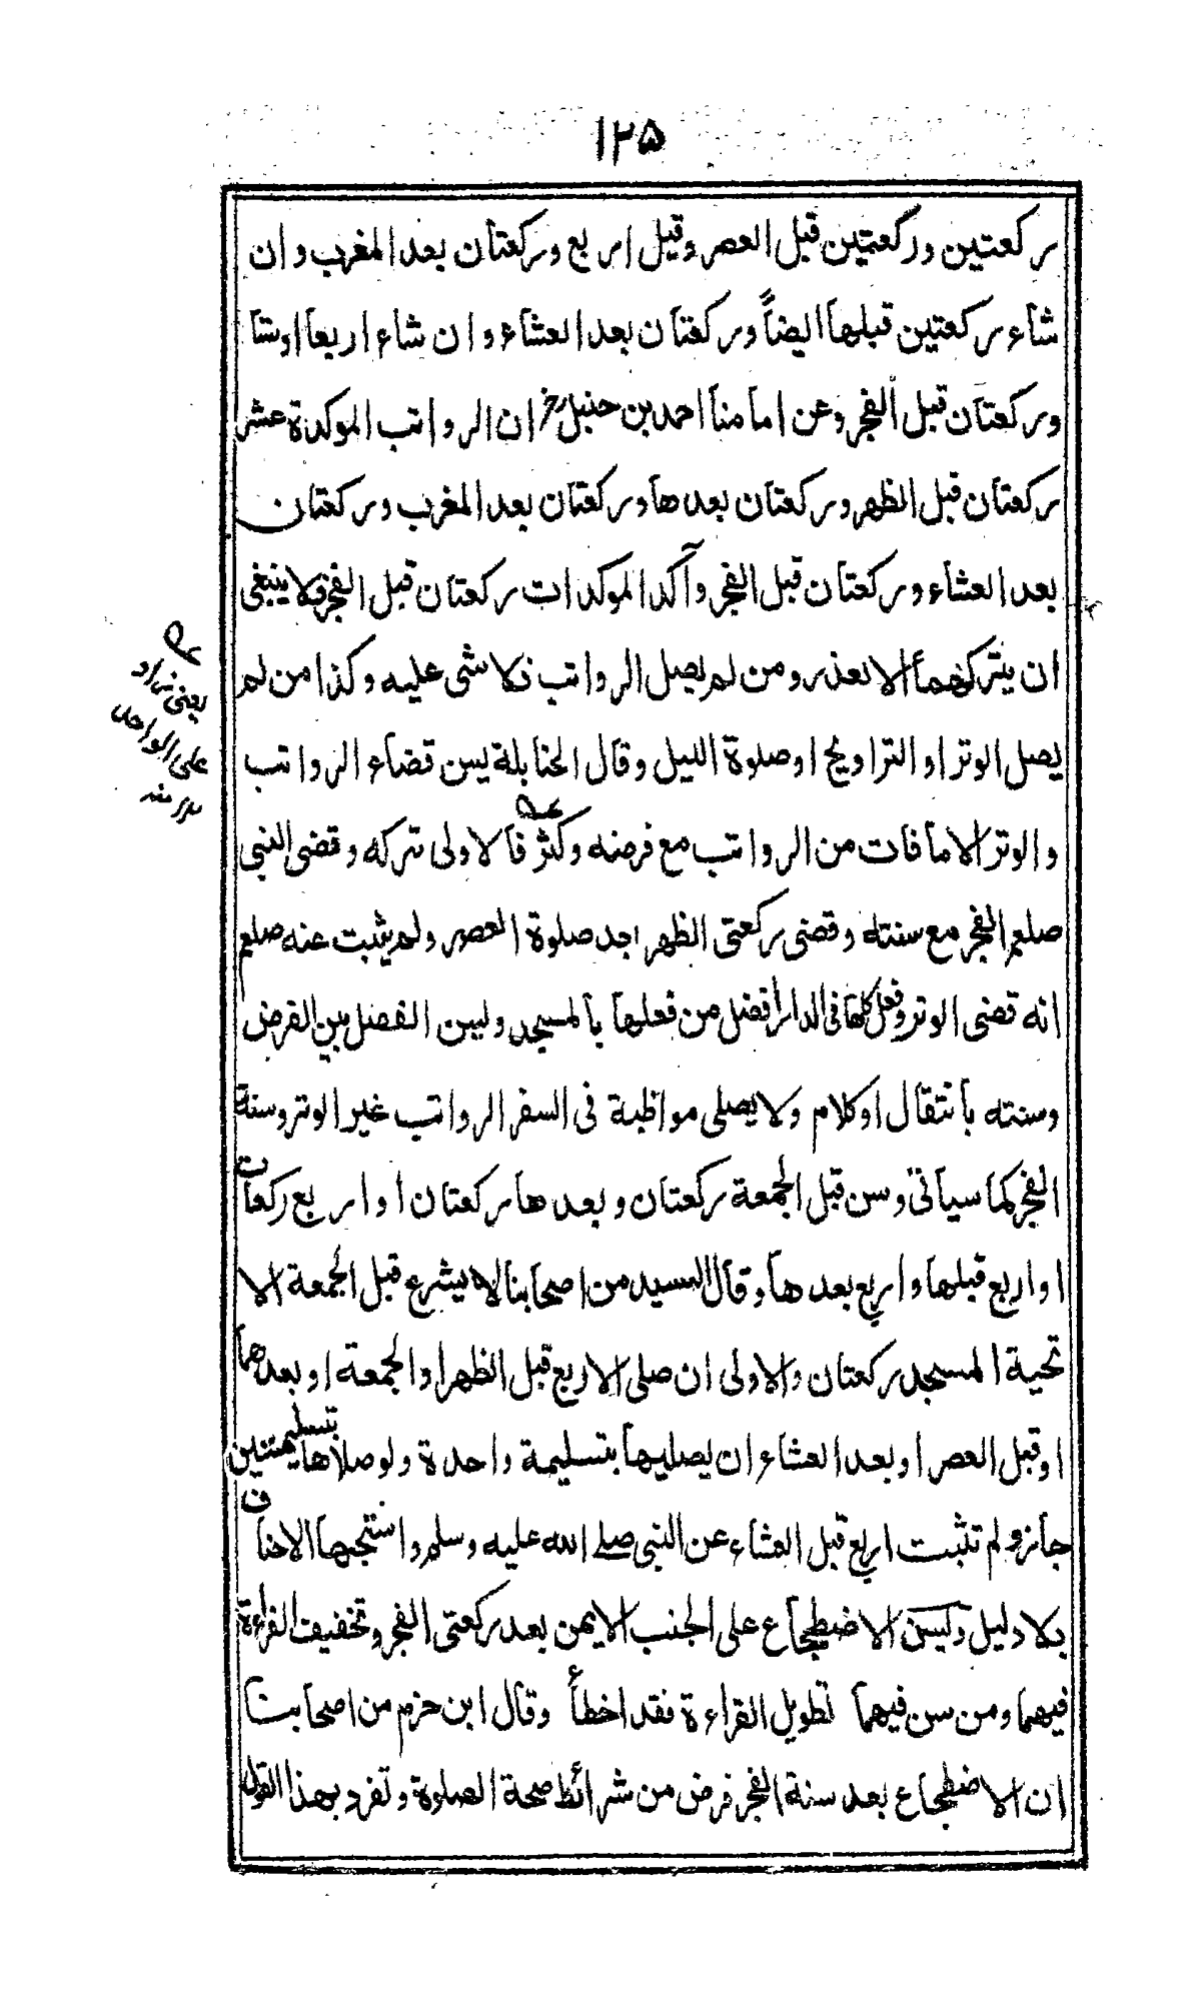 ١٢٥
ركعتين وركعتين قبل العصر وقيل اربع وركعتان بعد المغرب وان
شاء ركعتين قبلها ايضاً وركعتان بعد العشاء وان شاء اربعا اوستا
وركعتان قبل الفجر وعن امامنا احمد بن حنبل رح ان الرواتب الموكدة عشر
ركعتان قبل الظهر وركعتان بعدها وركعتان بعد المغرب وركعتان
بعد العشاء وركعتان قبل الفجر وآكد الموكدات ركعتان قبل الفجر فلا ينبغى
ان يتركهما الا بعذر ومن لم يصل الرواتب فلا شى عليه وكذا من لم
يصل الوتر او التراويح او صلوة الليل وقال الحنابلة يسن قضاء الرواتب
والوتر الا ما فات من الرواتب مع فرضه وكثر فالاولى تركه وقضى النبى
صلعم الفجر مع سنته وقضى ركعتى الظهر بعد صلوة العصر ولم يثبت عنه صلعم
انه قضى الوتر وفعل كلها فى الدار افضل من فعلها بالمسجد وليسن الفصل بين الفرض
وسنته بانتقال او كلام ولا يصلى مواظبة فى السفر الرواتب غير الوتر وسنة
الفجر كما سياتى وسن قبل الجمعة ركعتان وبعدها ركعتان او اربع ركعات
او اربع قبلها واربع بعدها وقال السيد من اصحابنا لا يشرع قبل الجمعة الا
تحية المسجد ركعتان والاولى ان صلى الاربع قبل الظهر او الجمعة او بعدهما
او قبل العصر او بعد العشاء ان يصليها بتسليمة واحدة ولو صلاها بتسليمتين
جاز ولم تثبت اربع قبل العشاء عن النبى صلے الله عليه وسلم واستحبها الاحناف
بلا دليل وليسن الاضطجاع على الجنب الايمن بعد ركعتى الفجر وتخفيف القراءة
فيهما ومن سن فيهما تطويل القراءة فقد اخطأ وقال ابن حزم من اصحابنا
ان الاضطجاع بعد سنة الفجر فرض من شرائط صحة الصلوة وتفرد بهذا القول
يعنى زاد
على الواحد
منه